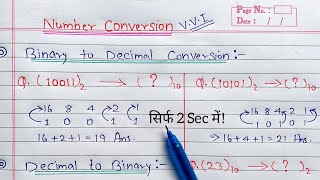 Number Conversion V.V.I
Page No. :
Date : / /
Binary to Decimal Conversion:-
Q. (10011)₂ → ( ? )₁₀
Q. (10101)₂ → ( ? )₁₀
16 8 4 2 1
1 0 0 1 1
16+2+1 = 19 Ans.
सिर्फ 2 Sec में!
16 8 4 2 1
1 0 1 0 1
⇒ 16+4+1 = 21 Ans.
Decimal to Binary:-
Q. (23)₁₀ → ( ? )₂